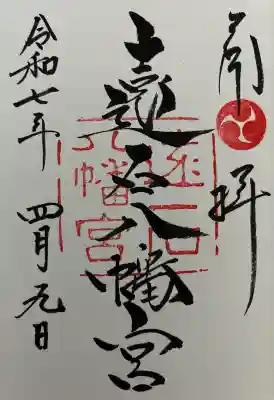 奉拝
遠石八幡宮
遠石
八幡宮
令和七年 四月九日